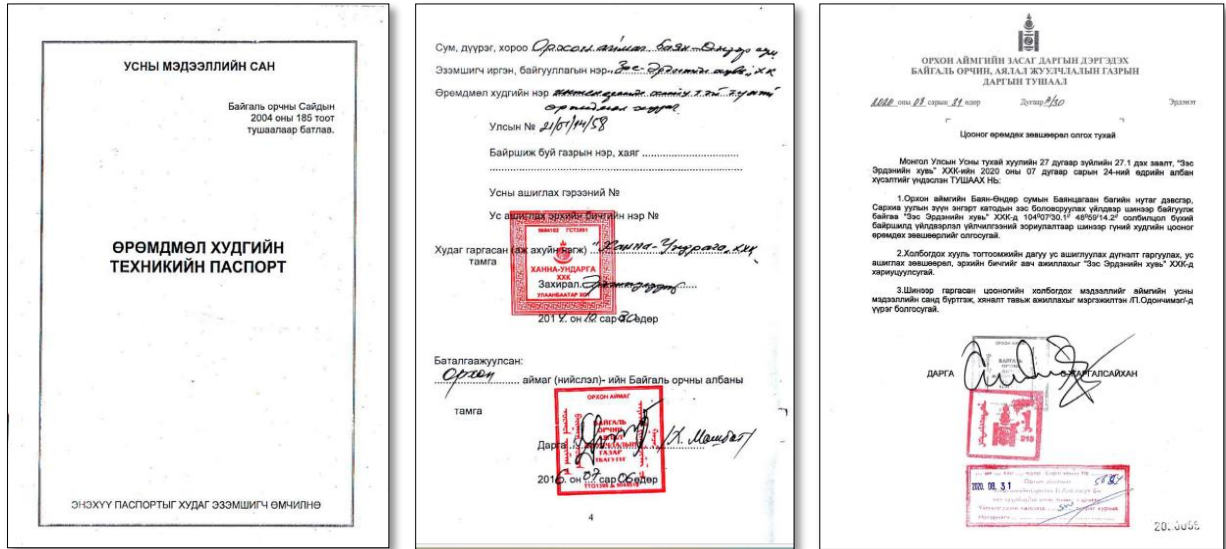 УСНЫ МЭДЭЭЛЛИЙН САН
Байгаль орчны Сайдын
2004 оны 185 тоот
тушаалаар батлав.
ӨРӨМДМӨЛ ХУДГИЙН
ТЕХНИКИЙН ПАСПОРТ
ЭНЭХҮҮ ПАСПОРТЫГ ХУДАГ ЭЗЭМШИГЧ ӨМЧИЛНӨ
Сум, дүүрэг, хороо Орхон аймаг Баян-Өндөр сум
Эзэмшигч иргэн, байгууллагын нэр "Зэс-Эрдэнийн хувь" ХХК
Өрөмдмөл худгийн нэр
Улсын № 21/01/14/58
Байршиж буй газрын нэр, хаяг
Усны ашиглах гэрээний №
Ус ашиглах эрхийн бичгийн нэр №
Худаг гаргасан (аж ахуйн нэгж) "Ханна-Ундрага" ХХК
тамга
ХАННА-УНДАРГА
ХХК
УЛААНБААТАР ХОТ
Захирал
2014 он 10 сар 30 өдөр
Баталгаажуулсан:
Орхон аймаг (нийслэл)- ийн Байгаль орчны албаны
тамга
ОРХОН АЙМАГ
БАЙГАЛЬ
ОРЧИН
АЯЛАЛ
ГАЗАР
Дарга /Х. Машбат/
2016 он 07 сар 06 өдөр
4
ОРХОН АЙМГИЙН ЗАСАГ ДАРГЫН ДЭРГЭДЭХ
БАЙГАЛЬ ОРЧИН, АЯЛАЛ ЖУУЛЧЛАЛЫН ГАЗРЫН
ДАРГЫН ТУШААЛ
2020 оны 08 сарын 31 өдөр Дугаар А/30 Эрдэнэт
Цооног өрөмдөх зөвшөөрөл олгох тухай
Монгол Улсын Усны тухай хуулийн 27 дугаар зүйлийн 27.1 дэх заалт, "Зэс
Эрдэнийн хувь" ХХК-ийн 2020 оны 07 дугаар сарын 24-ний өдрийн албан
хүсэлтийг үндэслэн ТУШААХ НЬ:
1.Орхон аймгийн Баян-Өндөр сумын Баянцагаан багийн нутаг дэвсгэр,
Сархиа уулын зүүн энгэрт катодын зэс боловсруулах үйлдвэр шинээр байгуулж
байгаа "Зэс Эрдэнийн хувь" ХХК-д 104⁰07'30.1" 48⁰59'14.2" солбилцол бүхий
байршилд үйлдвэрлэл үйлчилгээний зориулалтаар шинээр гүний худгийн цооног
өрөмдөх зөвшөөрлийг олгосугай.
2.Холбогдох хууль тогтоомжийн дагуу ус ашиглуулах дүгнэлт гаргуулах, ус
ашиглах зөвшөөрөл, эрхийн бичгийг авч ажиллахыг "Зэс Эрдэнийн хувь" ХХК-д
хариуцуулсугай.
3.Шинээр гаргасан цооногийн холбогдох мэдээллийг аймгийн усны
мэдээллийн санд бүртгэж, хяналт тавьж ажиллахыг мэргэжилтэн /П.Одончимэг/-д
үүрэг болгосугай.
ДАРГА ЖАРГАЛСАЙХАН
2020. 08. 31